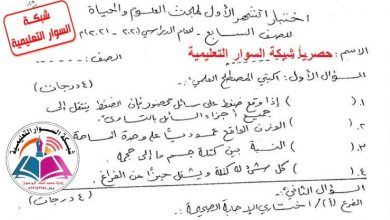 شبكة
السوار التعليمية
اختبار الشهر الأول لمبحث العلوم والحياة
للصف السابع - للعام الدراسي (٢٠٢٠ - ٢٠٢١م)
الاسم: حصرياً شبكة السوار التعليمية الصف:
السؤال الأول: اكتبي المصطلح العلمي: (٤ درجات)
١. ( ) إذا وقع ضغط على سائل محصور فإن الضغط ينتقل إلى
جميع أجزاء السائل بالتساوي.
٢. ( ) الوزن الواقع عمودياً على وحدة المساحة
٣. ( ) النسبة بين كتلة جسم ما إلى حجمه
٤. ( ) كل شيء له كتلة ويشغل حيزاً من الفراغ.
السؤال الثاني: (٤ درجات)
الفرع (أ) / اختاري الإجابة الصحيحة:
شبكة السوار التعليمية